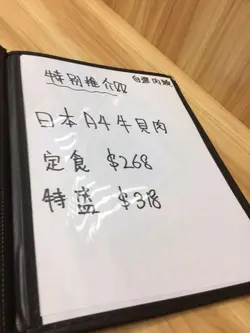 特別推介
日本A4牛貝肉
定食 $268
特盛 $318